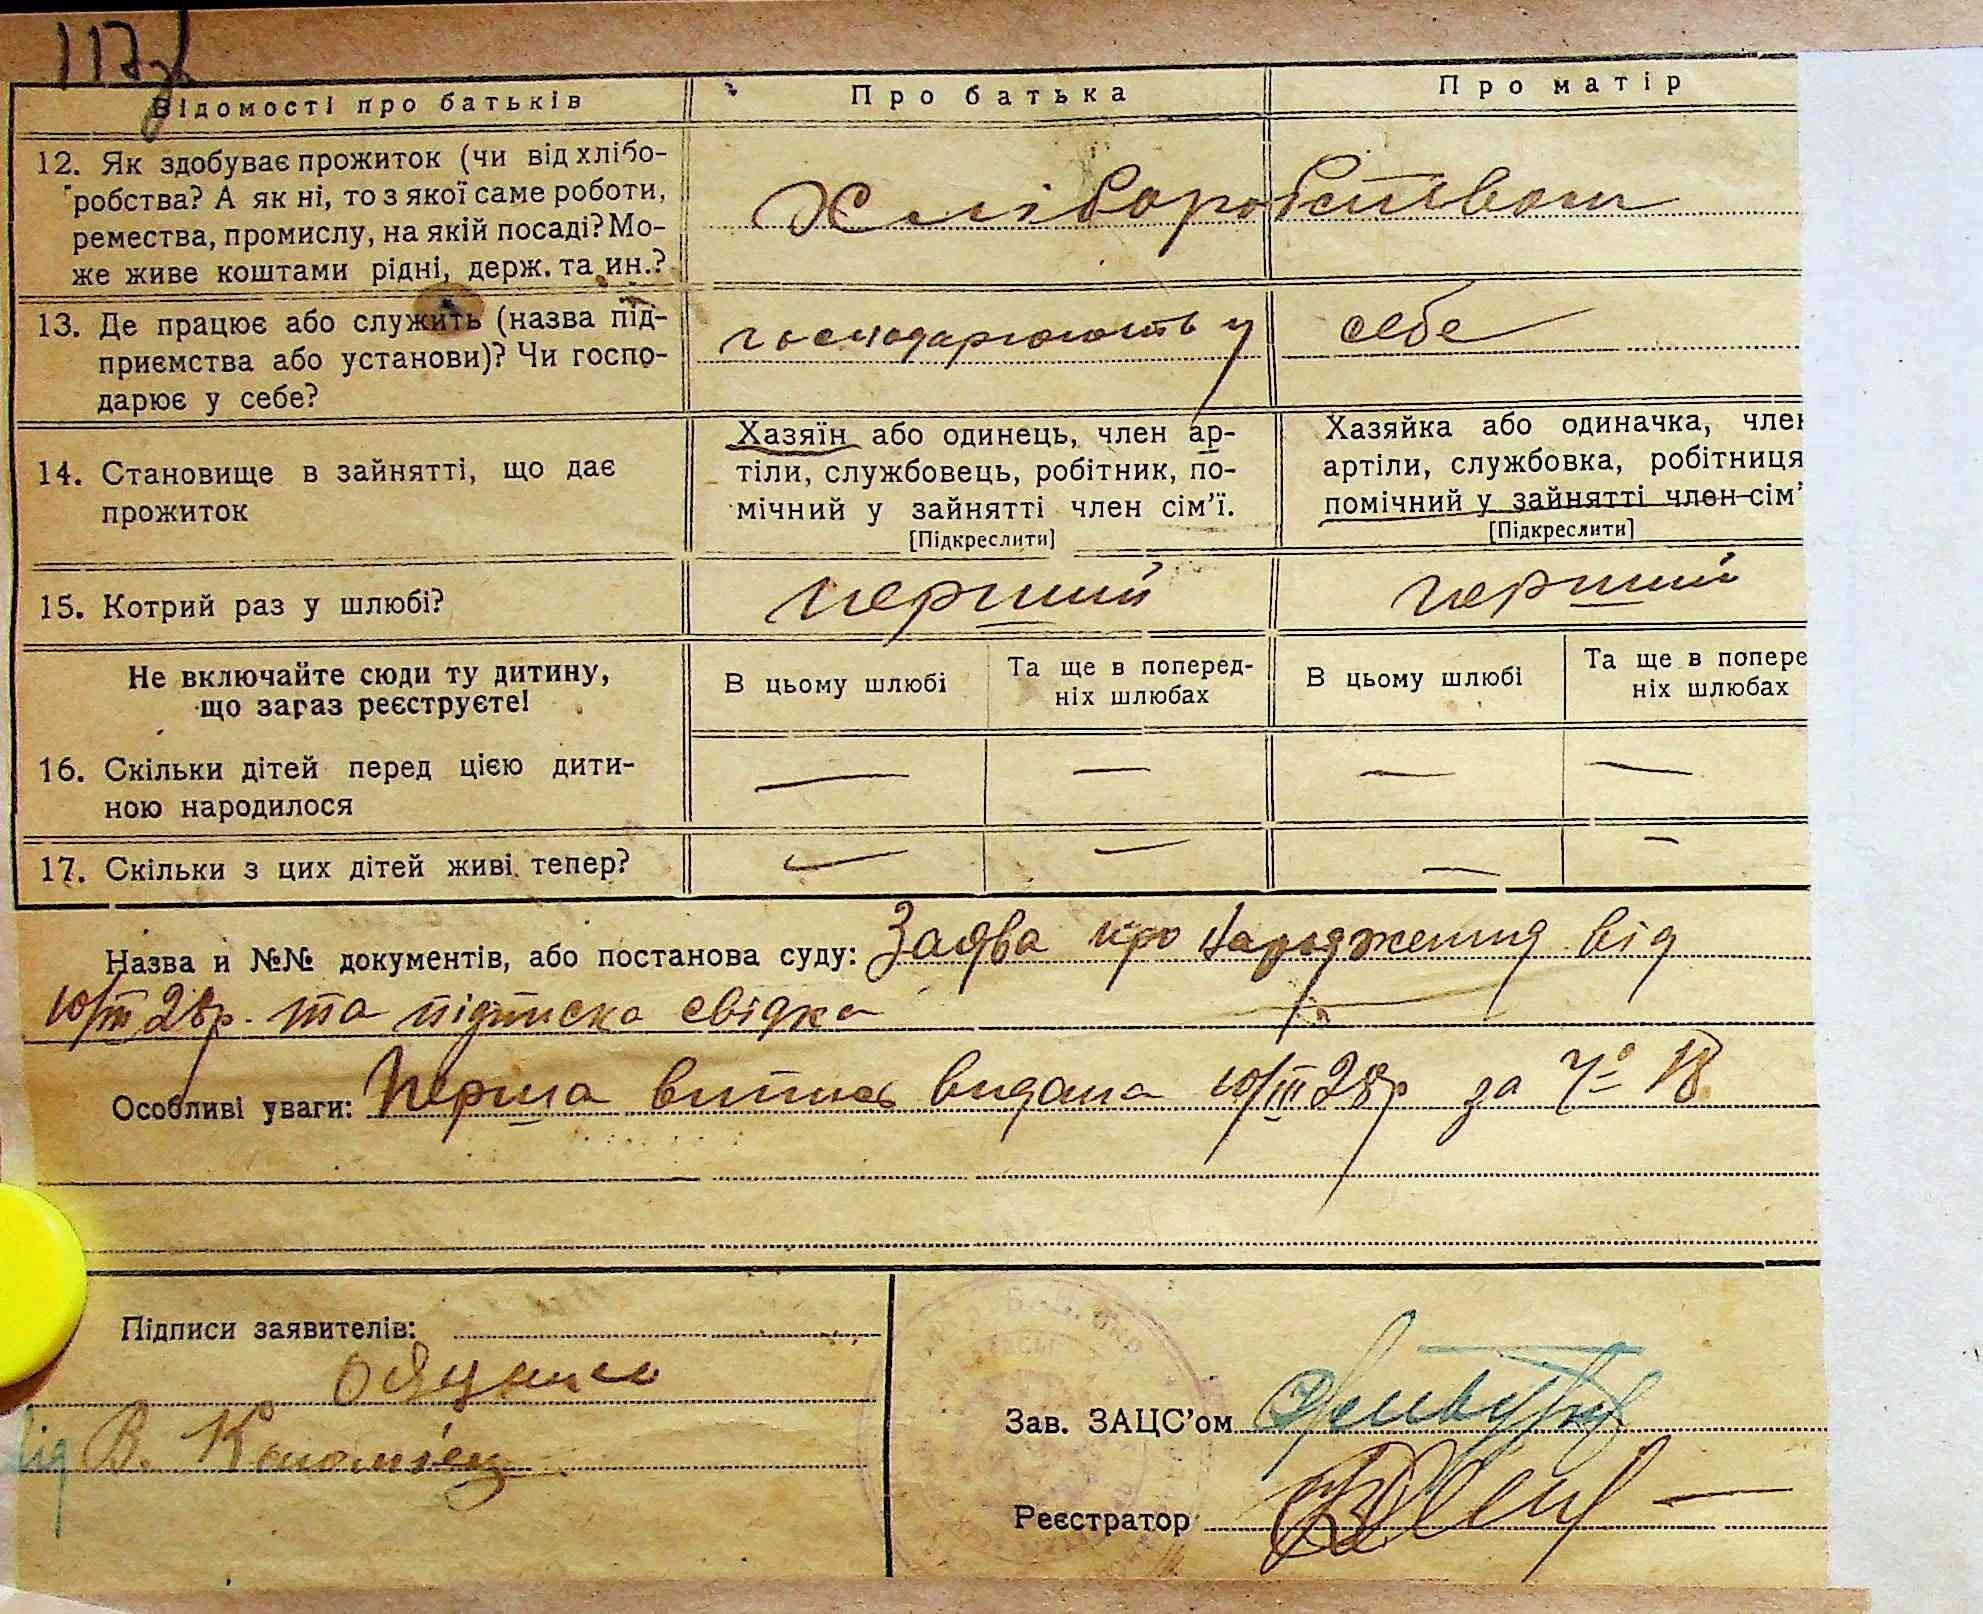 117зв
Відомості про батьків
Про батька
Про матір
12. Як здобуває прожиток (чи від хлібо-
робства? А як ні, то з якої саме роботи,
ремества, промислу, на якій посаді? Мо-
же живе коштами рідні, держ. та ин.?
Хліборобством
13. Де працює або служить (назва під-
приємства або установи)? Чи госпо-
дарює у себе?
господарюють у себе
14. Становище в зайнятті, що дає
прожиток
Хазяїн або одинець, член ар-
тіли, службовець, робітник, по-
мічний у зайнятті член сім'ї.
[Підкреслити]
Хазяйка або одиначка, член
артіли, службовка, робітниця
помічний у зайнятті член сім'
[Підкреслити]
15. Котрий раз у шлюбі?
перший
перший
Не включайте сюди ту дитину,
що зараз реєструєте!
В цьому шлюбі
Та ще в поперед-
ніх шлюбах
В цьому шлюбі
Та ще в попере
ніх шлюбах
16. Скільки дітей перед цією дити-
ною народилося
— — — —
17. Скільки з цих дітей живі тепер?
— — — —
Назва и №№ документів, або постанова суду: Заява про народження від
10/III 28р. та підписка свідка
Особливі уваги: Перша випись видана 10/III 28р за № 18
Підписи заявителів:
В. Коломієц
Зав. ЗАЦС'ом
Реєстратор